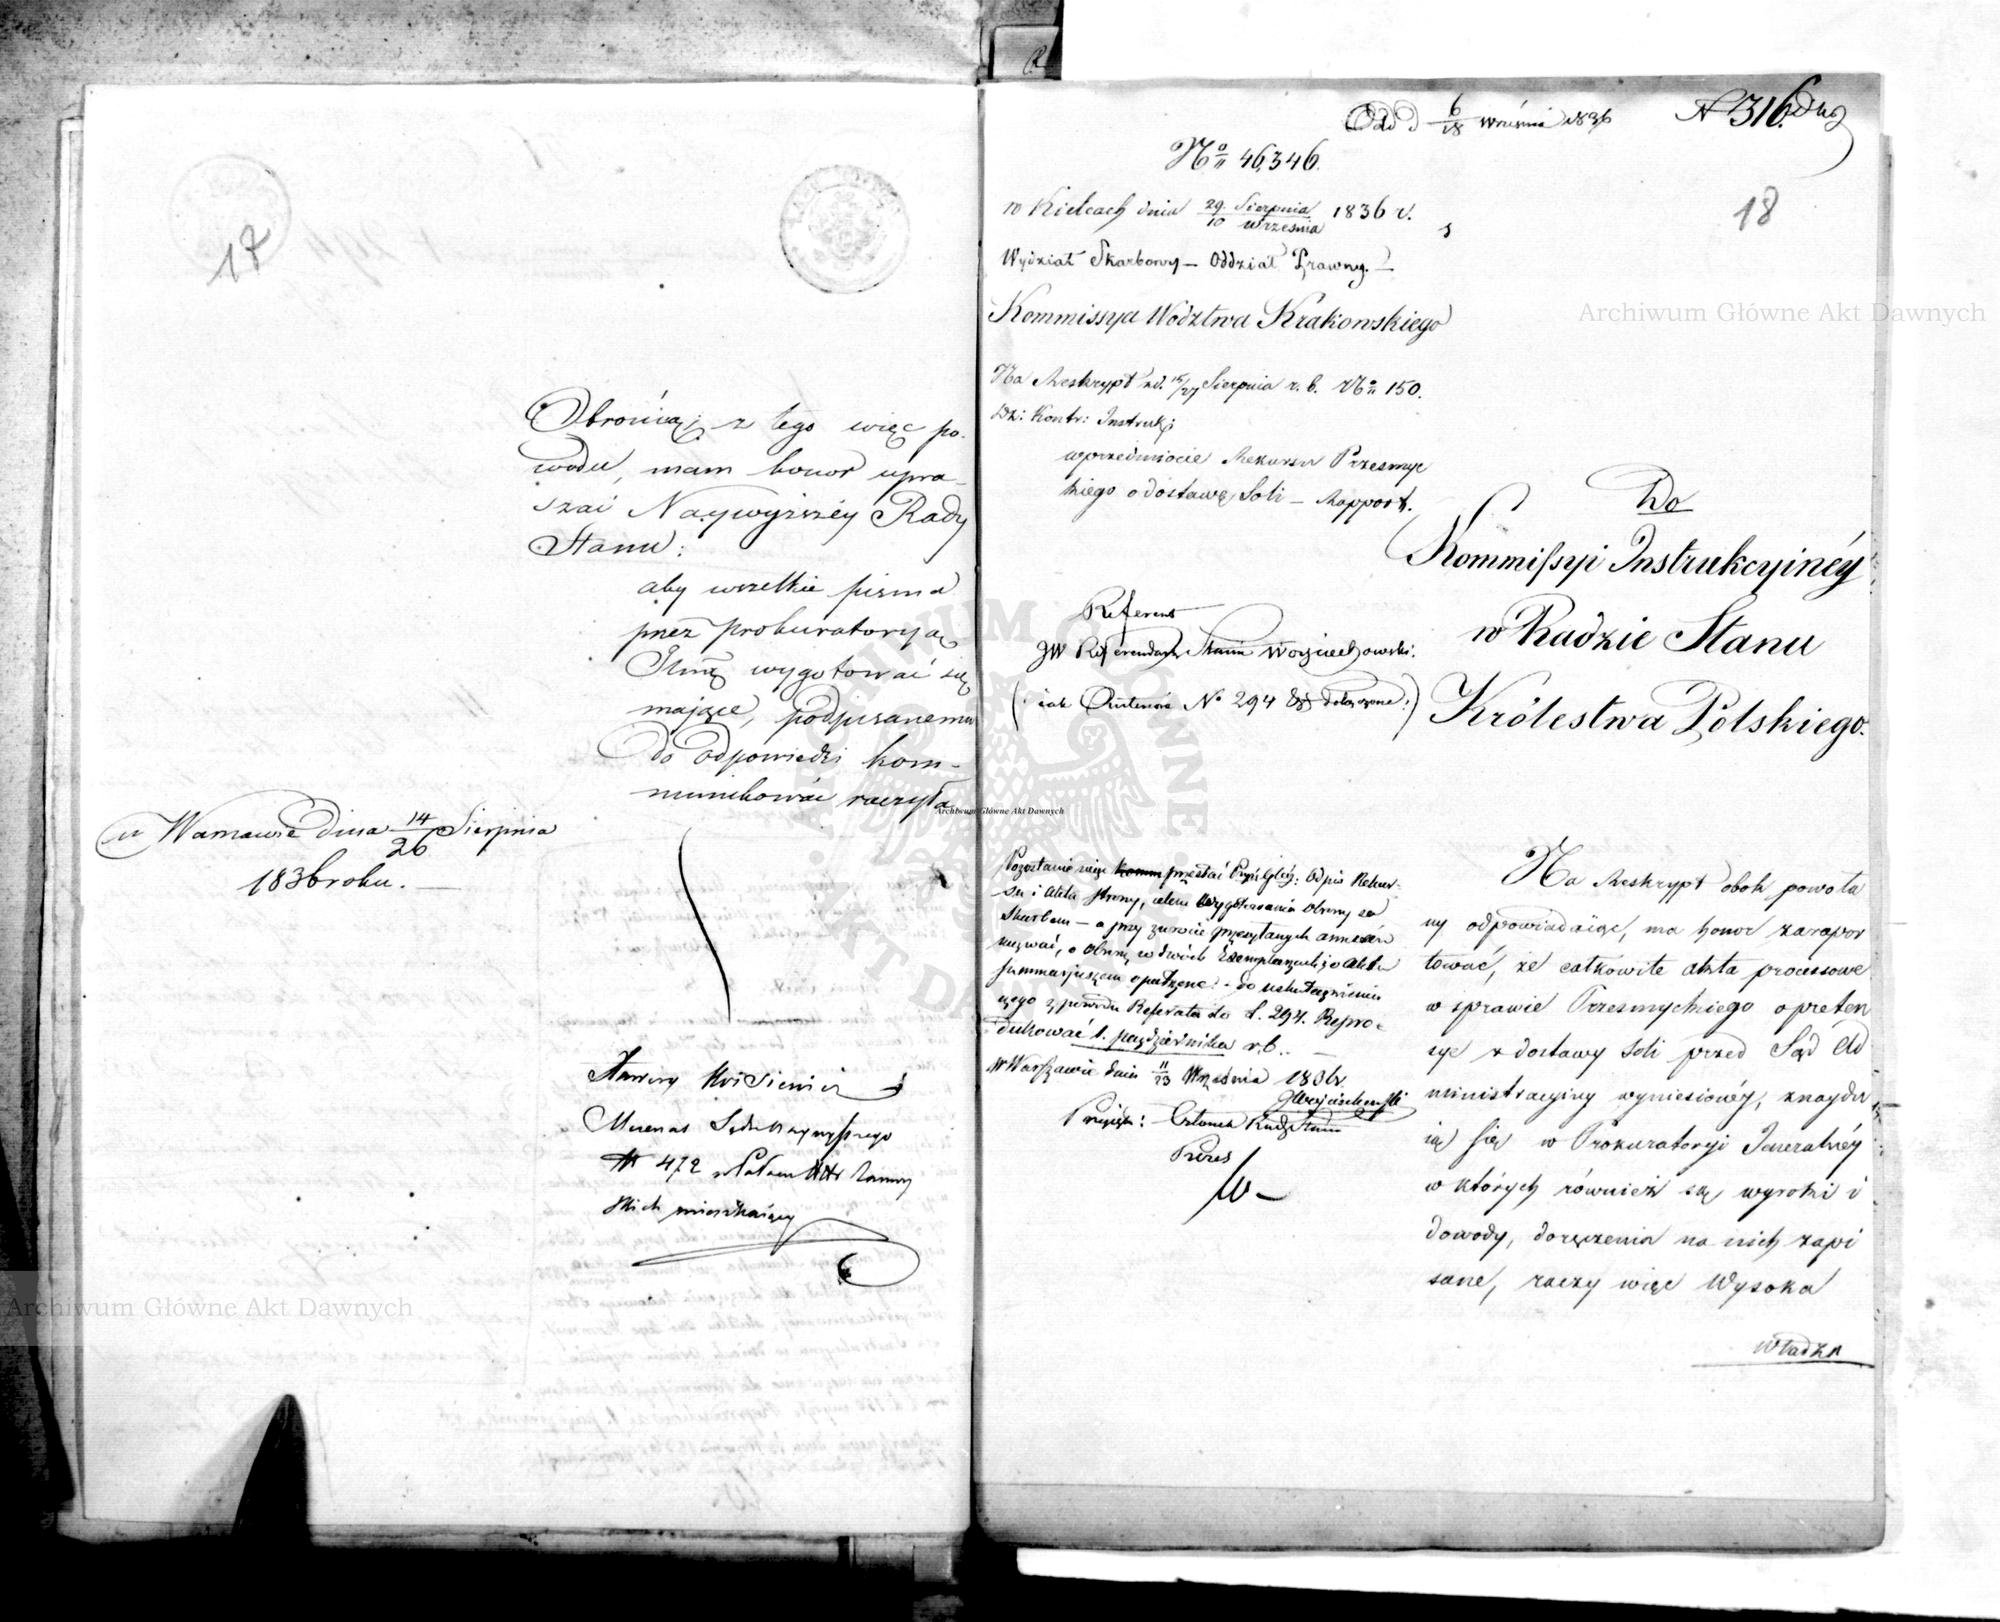 17
Obrońcą; z tego więc po-
wodu, mam honor upra-
szać Naywyższéy Rady
Stanu:
aby wszelkie pisma
przez prokuratoryą
wygotować się
mające, podpisanemu
do odpowiedzi kom-
munikować raczyła
w Warszawie dnia 14/26 Sierpnia
1836 roku. —
Mecenas Sądu Naywyższego
№ 472
mieszkaiący
6/18 Września 1836
N 316
18
No 46,346.
w Kielcach dnia 29 Sierpnia/10 Września 1836 r.
Wydział Skarbowy — Oddział Prawny. —
Kommissya Wództwa Krakowskiego
Na Reskrypt z d. 15/27 Sierpnia r. b. No 150.
Dz: Kontr: Instrukc
w przedmiocie Rekursu Przesmyc
kiego o dostawę Soli — Rapport.
Do
Kommissyi Instrukcyinéy
w Radzie Stanu
Królestwa Polskiego.
Referent
JW Referendarz Stanu Woyciechowski.
(: iak N° 294 dołączone :)
Pozostanie więc przesłać odpis Rekur-
su i Akta strony, celem wygotowania obrony ze
Skarbem — a przy zwrocie przesyłanych annexów
wezwać, o obronę w dwóch Exemplarzach i o Akta
summaryuszem opatrzone: — do uskutecznienia
czego z powodu Referatu do L. 294. Repro-
dukować 1. października r. b. —
w Warszawie dnia 11/23 Września 1836 r.
JWoyciechowski
Członek Rady Stanu
Prezes
Na Reskrypt obok powoła
ny odpowiadaiąc, ma honor zarapor
tować, że całkowite akta processowe
w sprawie Przesmyckiego o preten
sye z dostawy Soli przed Sąd Ad
ministracyiny wyniesionéy, znayduı
ią się w Prokuratoryi Jeneralnéy
w których również są wyroki i
dowody, doręczenia na nich zapi
sane, raczy więc Wysoka
Władza
Archiwum Główne Akt Dawnych
Archiwum Główne Akt Dawnych
Archiwum Główne Akt Dawnych
ARCHIWUM GŁÓWNE AKT DAWNYCH